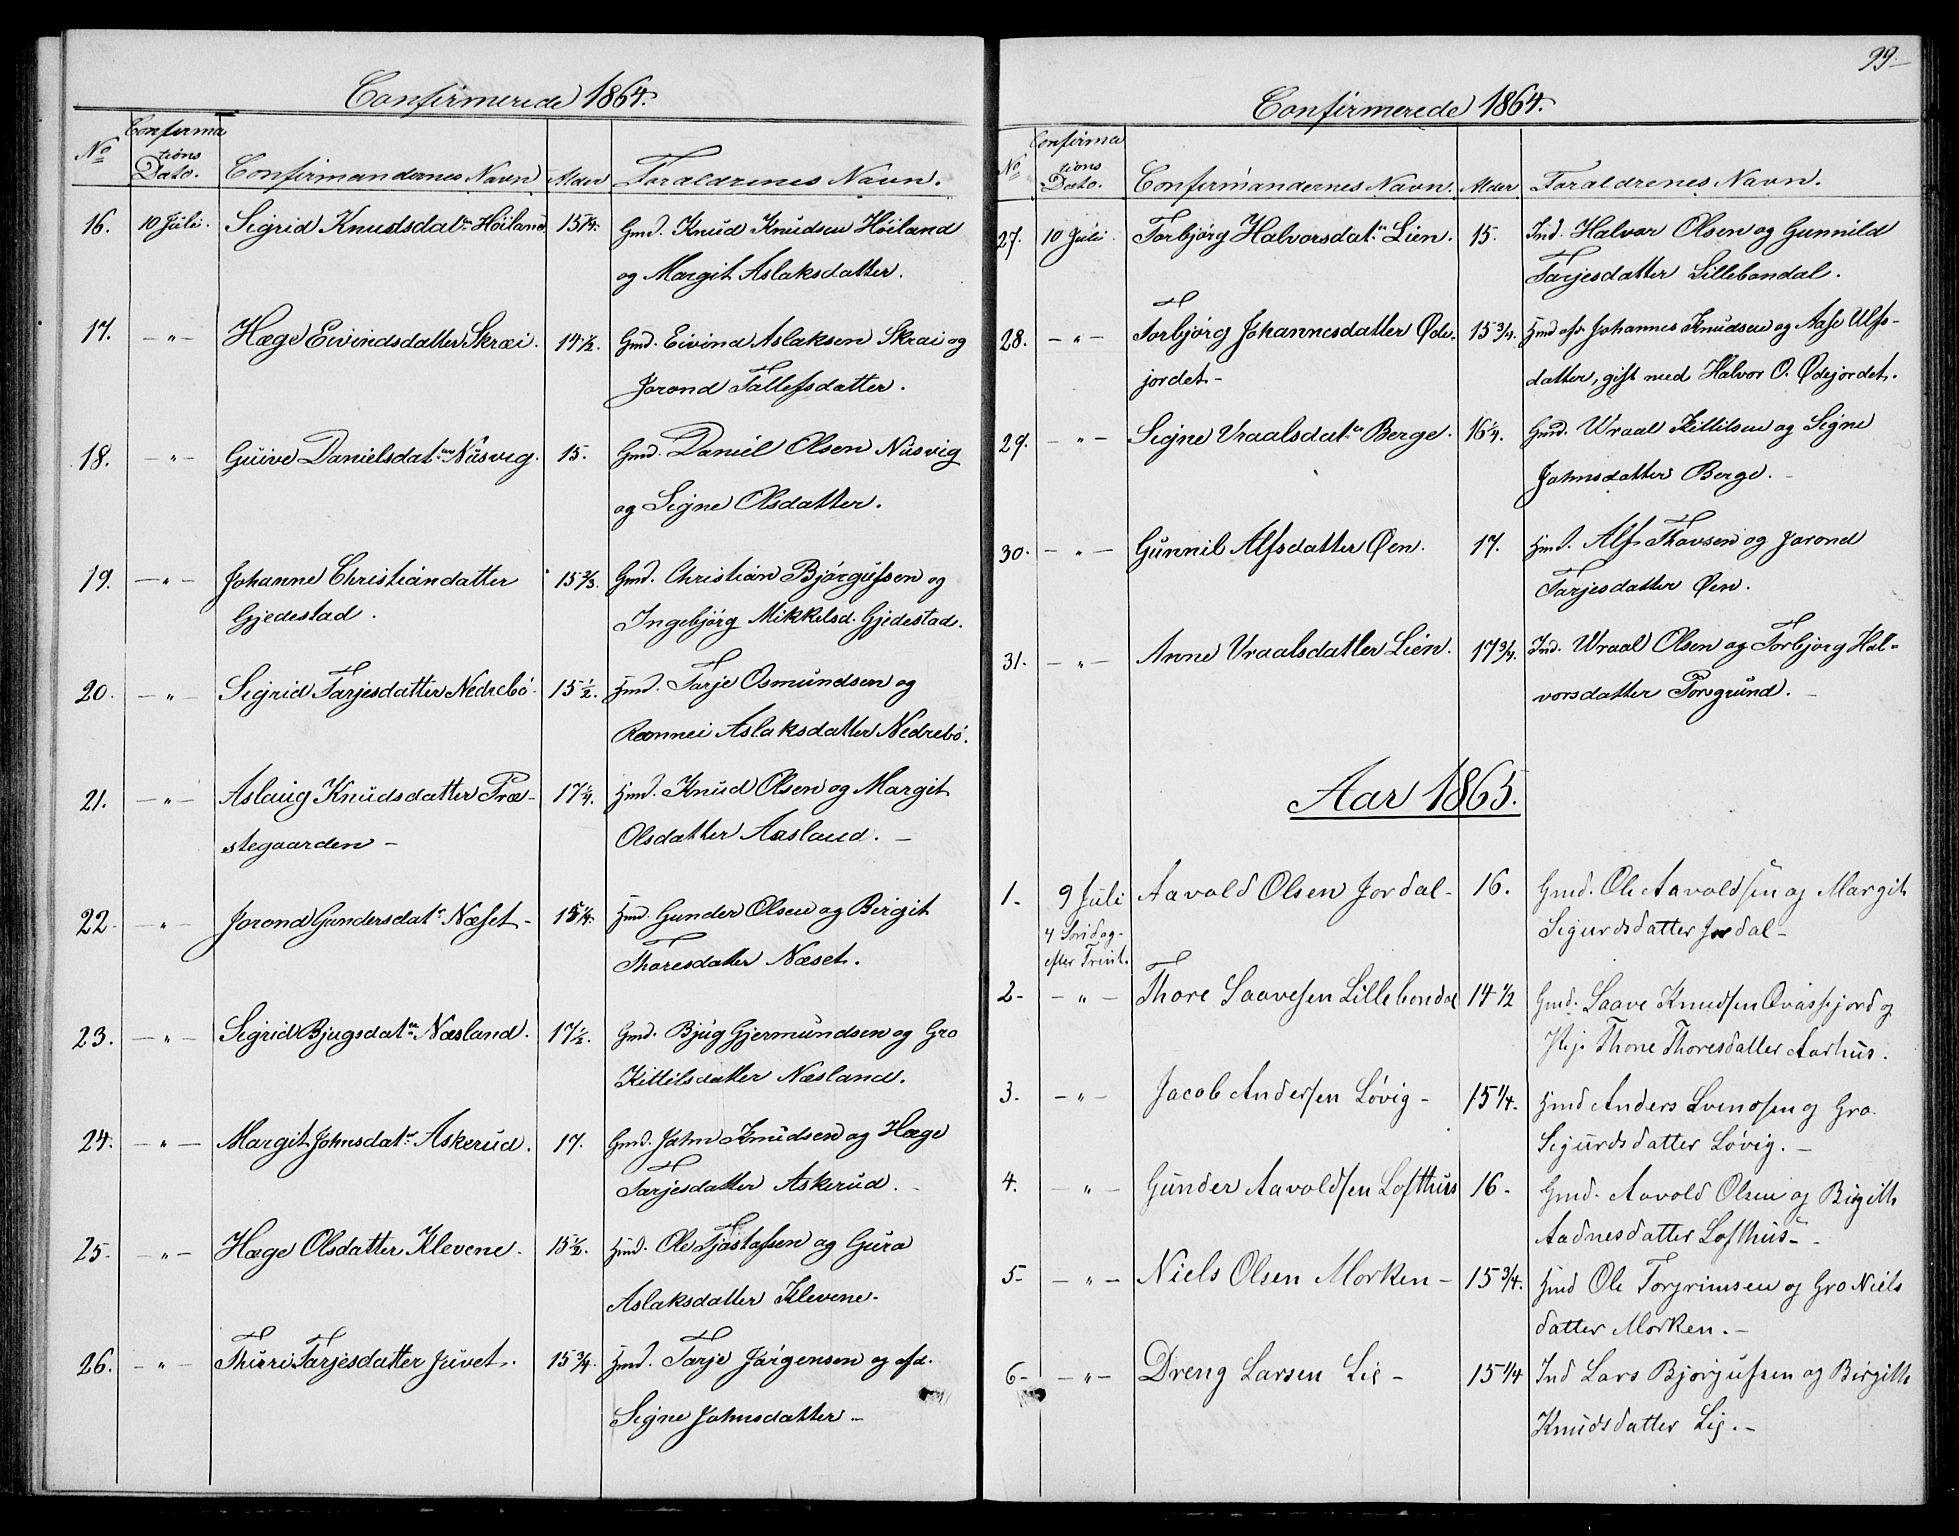 Confirmerede 1864.
No Confirmations Dato. Confirmandernes Navn Alder Foraldrenes Navn.
16. 10 Juli. Sigrid Knudsdatr Höiland 15 1/4. Gmd. Knud Knudsen Höiland
og Margit Aslaksdatter.
17. — " — Hæge Eivindsdatter Skræi. 14 1/2. Gmd. Eivind Aslaksen Skrai og
Jorond Tallefsdatter.
18. — " — Guive Danielsdatter Näsvig. 15. Gmd. Daniel Olsen Näsvig
og Signe Olsdatter.
19. — " — Johanne Christiandatter 15 2/3. Gmd. Christian Bjørgufsen og
Gjedestad. Ingebjørg Mikkelsd. Gjedestad.
20. — " — Sigrid Tarjesdatter Nedrebö. 15 1/2. Hmd. Tarje Osmundsen og
Rannei Aslaksdatter Nedrebö.
21. — " — Aslaug Knudsdatter Præ- 17 1/4. Hmd. Knud Olsen og Margit
stegaarden — Olsdatter Aasland. —
22. — " — Jorond Gundersdatr Næset — 15 1/4. Hmd. Gunder Olsen og Birgit
Thoresdatter Næset.
23. — " — Sigrid Bjugsdatr Næsland. 17 1/2. Gmd. Bjug Gjermundsen og Gro
Kittilsdatter Næsland.
24. — " — Margit Johnsdatr Askerud. 17. Gmd. John Knudsen og Hæge
Tarjesdatter Askerud.
25. — " — Hæge Olsdatter Klevene. 15 1/2. Hmd. Ole Tjøstafsen og Gura
Aslaksdatter Klevene.
26. — " — Thurri Tarjesdatter Juvet. 15 3/4. Hmd. Tarje Jörgensen og afd.
Signe Johnsdatter —
99 —
Confirmerede 1864.
No Confirmations Dato. Confirmandernes Navn. Alder Foraldrenes Navn.
27. 10 Juli Torbjörg Halvorsdatr Lien. 15. Ind. Halvor Olsen og Gunnild
Tarjesdatter Lillebondal.
28. — " — Torbjørg Johannesdatter Øde- 15 3/4. Hmd afd. Johannes Knudsen og Aase Ulfs-
jordet — datter, gift med Halvor O. Ødejordet.
29. — " — Signe Vraalsdatr Berge. 16 1/4. Gmd. Wraal Kittilsen og Signe
Johnsdatter Berge. —
30. — " — Gunnil Alfsdatter Øen. 17. Hmd. Alf Thovsen og Jorond
Tarjesdatter Øen.
31. — " — Anne Vraalsdatter Lien. 17 3/4. Ind. Wraal Olsen og Torbjorg Hal-
vorsdatter Porsgrund. —
Aar 1865.
1. 9 Juli Aavold Olsen Jordal — 16. Gmd. Ole Aavoldsen og Margit
4 Søndag Sigurdsdatter Jordal —
efter Trinit.
2 - — " — Thore Saavesen Lillebondal 14 1/2 Gmd. Saave Knudsen Qvaasfjord og
Pige Thone Thoresdatter Aarhus.
3. — " — Jacob Andersen Lövig — 15 1/4. Hmd Anders Svendsen og Gro
Sigurdsdatter Lövig. —
4. — " — Gunder Aavoldsen Lofthuus 16 - Gmd. Aavold Olsen og Birgith
Aadnesdatter Lofthus -
5 - — " — Niels Olsen Morken — 15 3/4. Hmd Ole Torgrimsen og Gro Niels
datter Morken. —
6 - — " — Dreng Larsen Lie — 15 1/4 Ind Lars Bjørgufsen og Birgith
Knudsdatter Lie. —